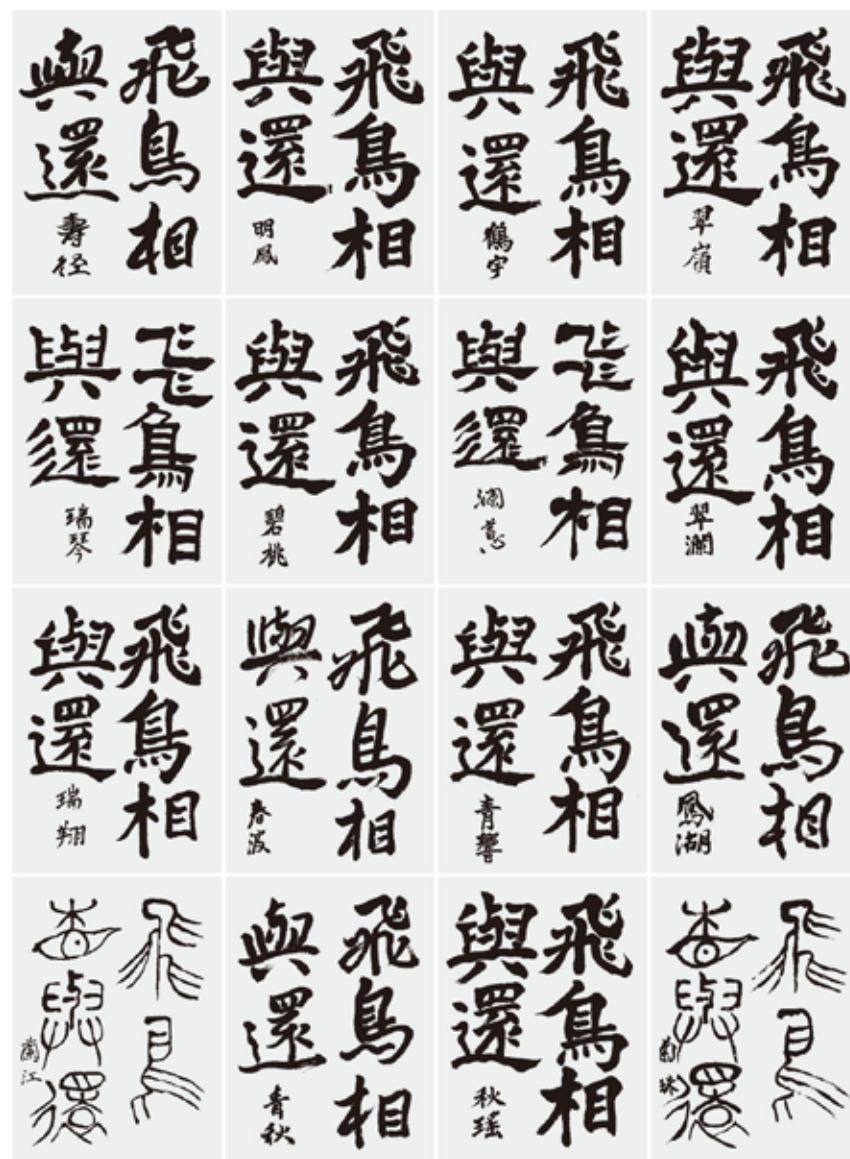 飛鳥相
與還
壽径
飛鳥相
與還
明鳳
飛鳥相
與還
鶴宇
飛鳥相
與還
翠嶺
飛鳥相
與還
瑞琴
飛鳥相
與還
碧桃
飛鳥相
與還
飛鳥相
與還
翠瀾
飛鳥相
與還
瑞翔
飛鳥相
與還
春波
飛鳥相
與還
青響
飛鳥相
與還
鳳湖
飛鳥
相與還
蘭江
飛鳥相
與還
青秋
飛鳥相
與還
秋瑤
飛鳥
相與還